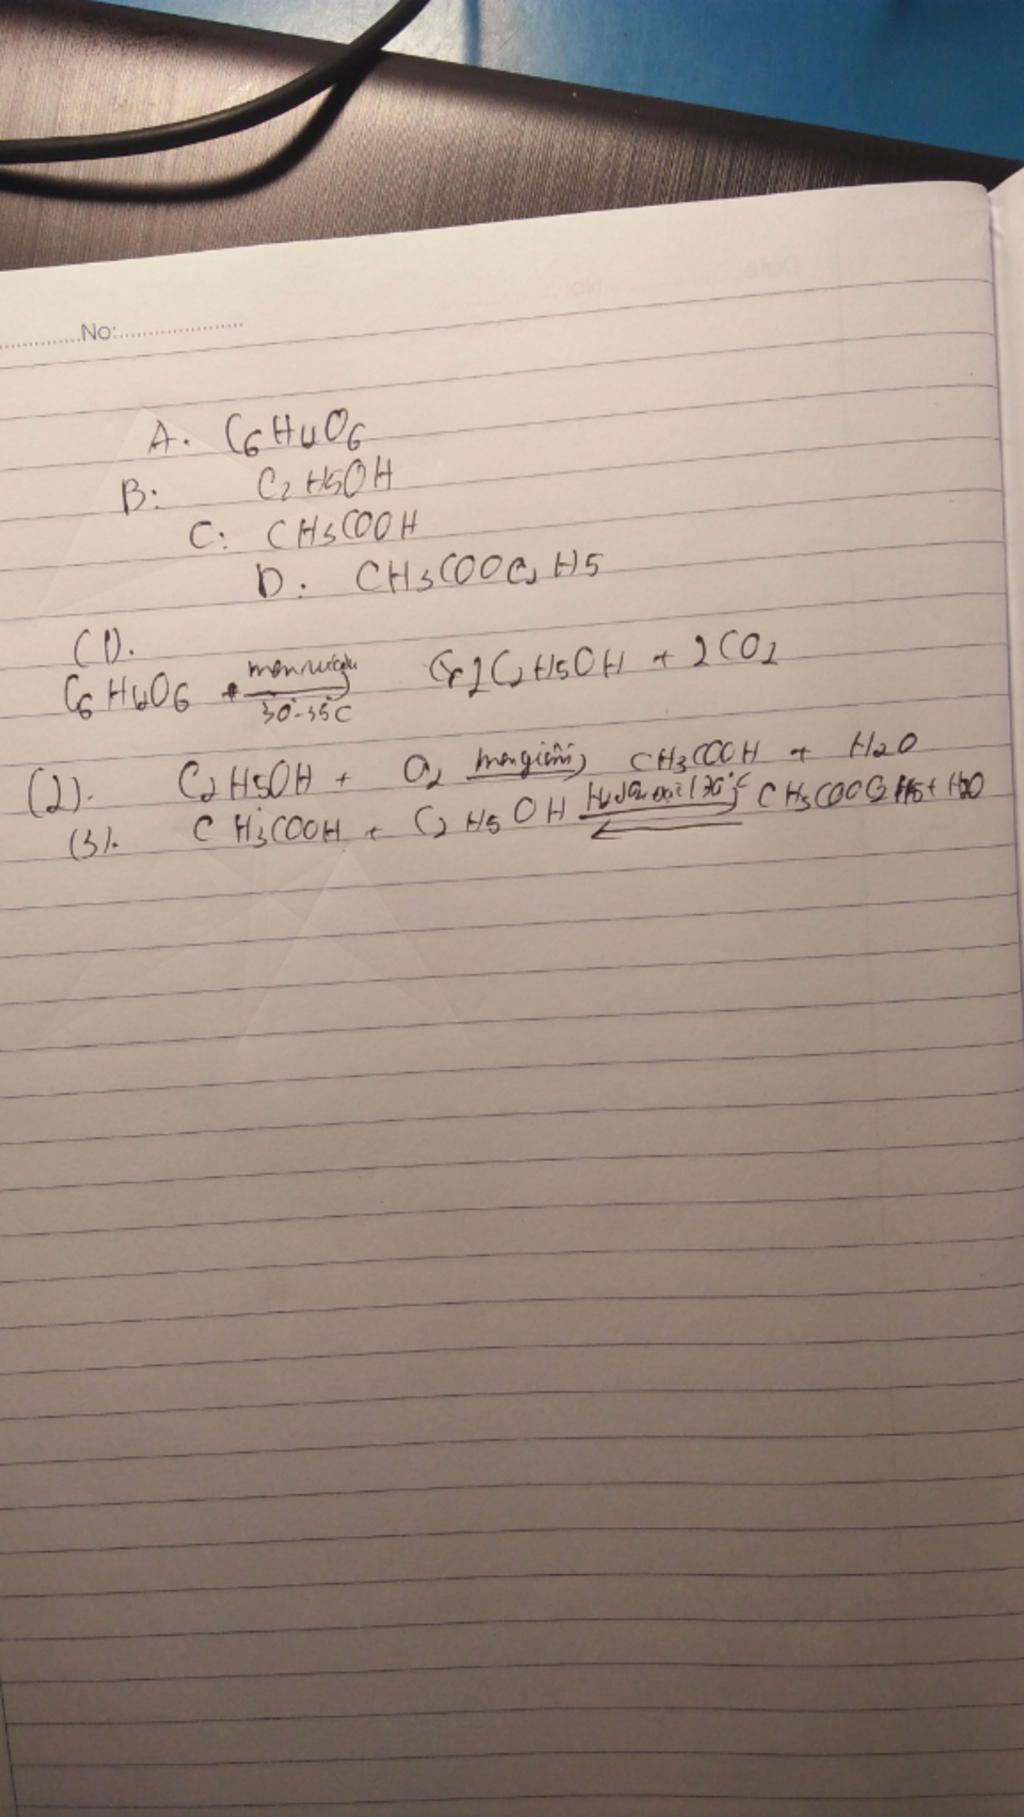 No:
A. C6H4O6
B: C2H5OH
C: CH3COOH
D: CH3COOC2H5
(1).
C6H6O6 men rượu 30°-35°C 2C2H5OH + 2CO2
(2). C2H5OH + O2 men giấm CH3COOH + H2O
(3). CH3COOH + C2H5OH CH3COOC2H5 + H2O